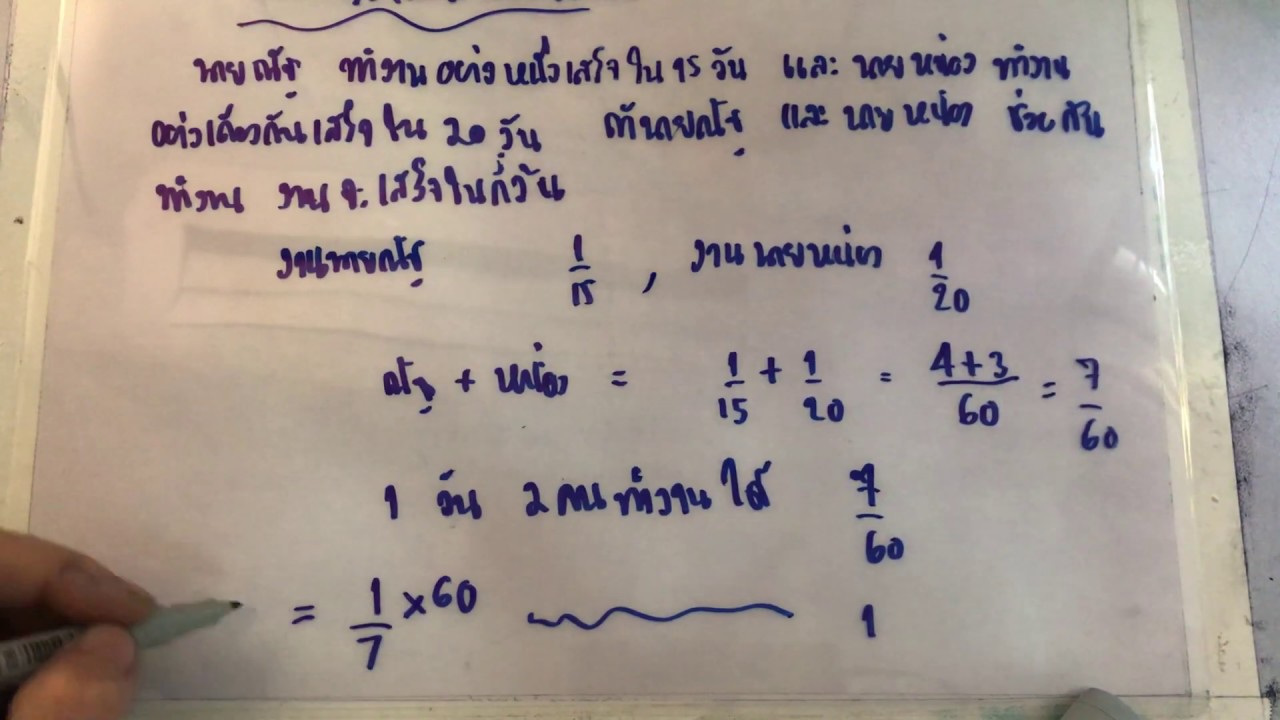 นายณัฐ ทำงานอย่างหนึ่งเสร็จใน 15 วัน และ นายหน่อง ทำงาน
อย่างเดียวกันเสร็จใน 20 วัน ถ้านายณัฐ และ นายหน่อง ช่วยกัน
ทำงาน งานจะเสร็จในกี่วัน
งานนายณัฐ 1/15 , งานนายหน่อง 1/20
ณัฐ + หน่อง = 1/15 + 1/20 = 4+3/60 = 7/60
1 วัน 2 คนทำงานได้ 7/60
= 1/7 × 60 1